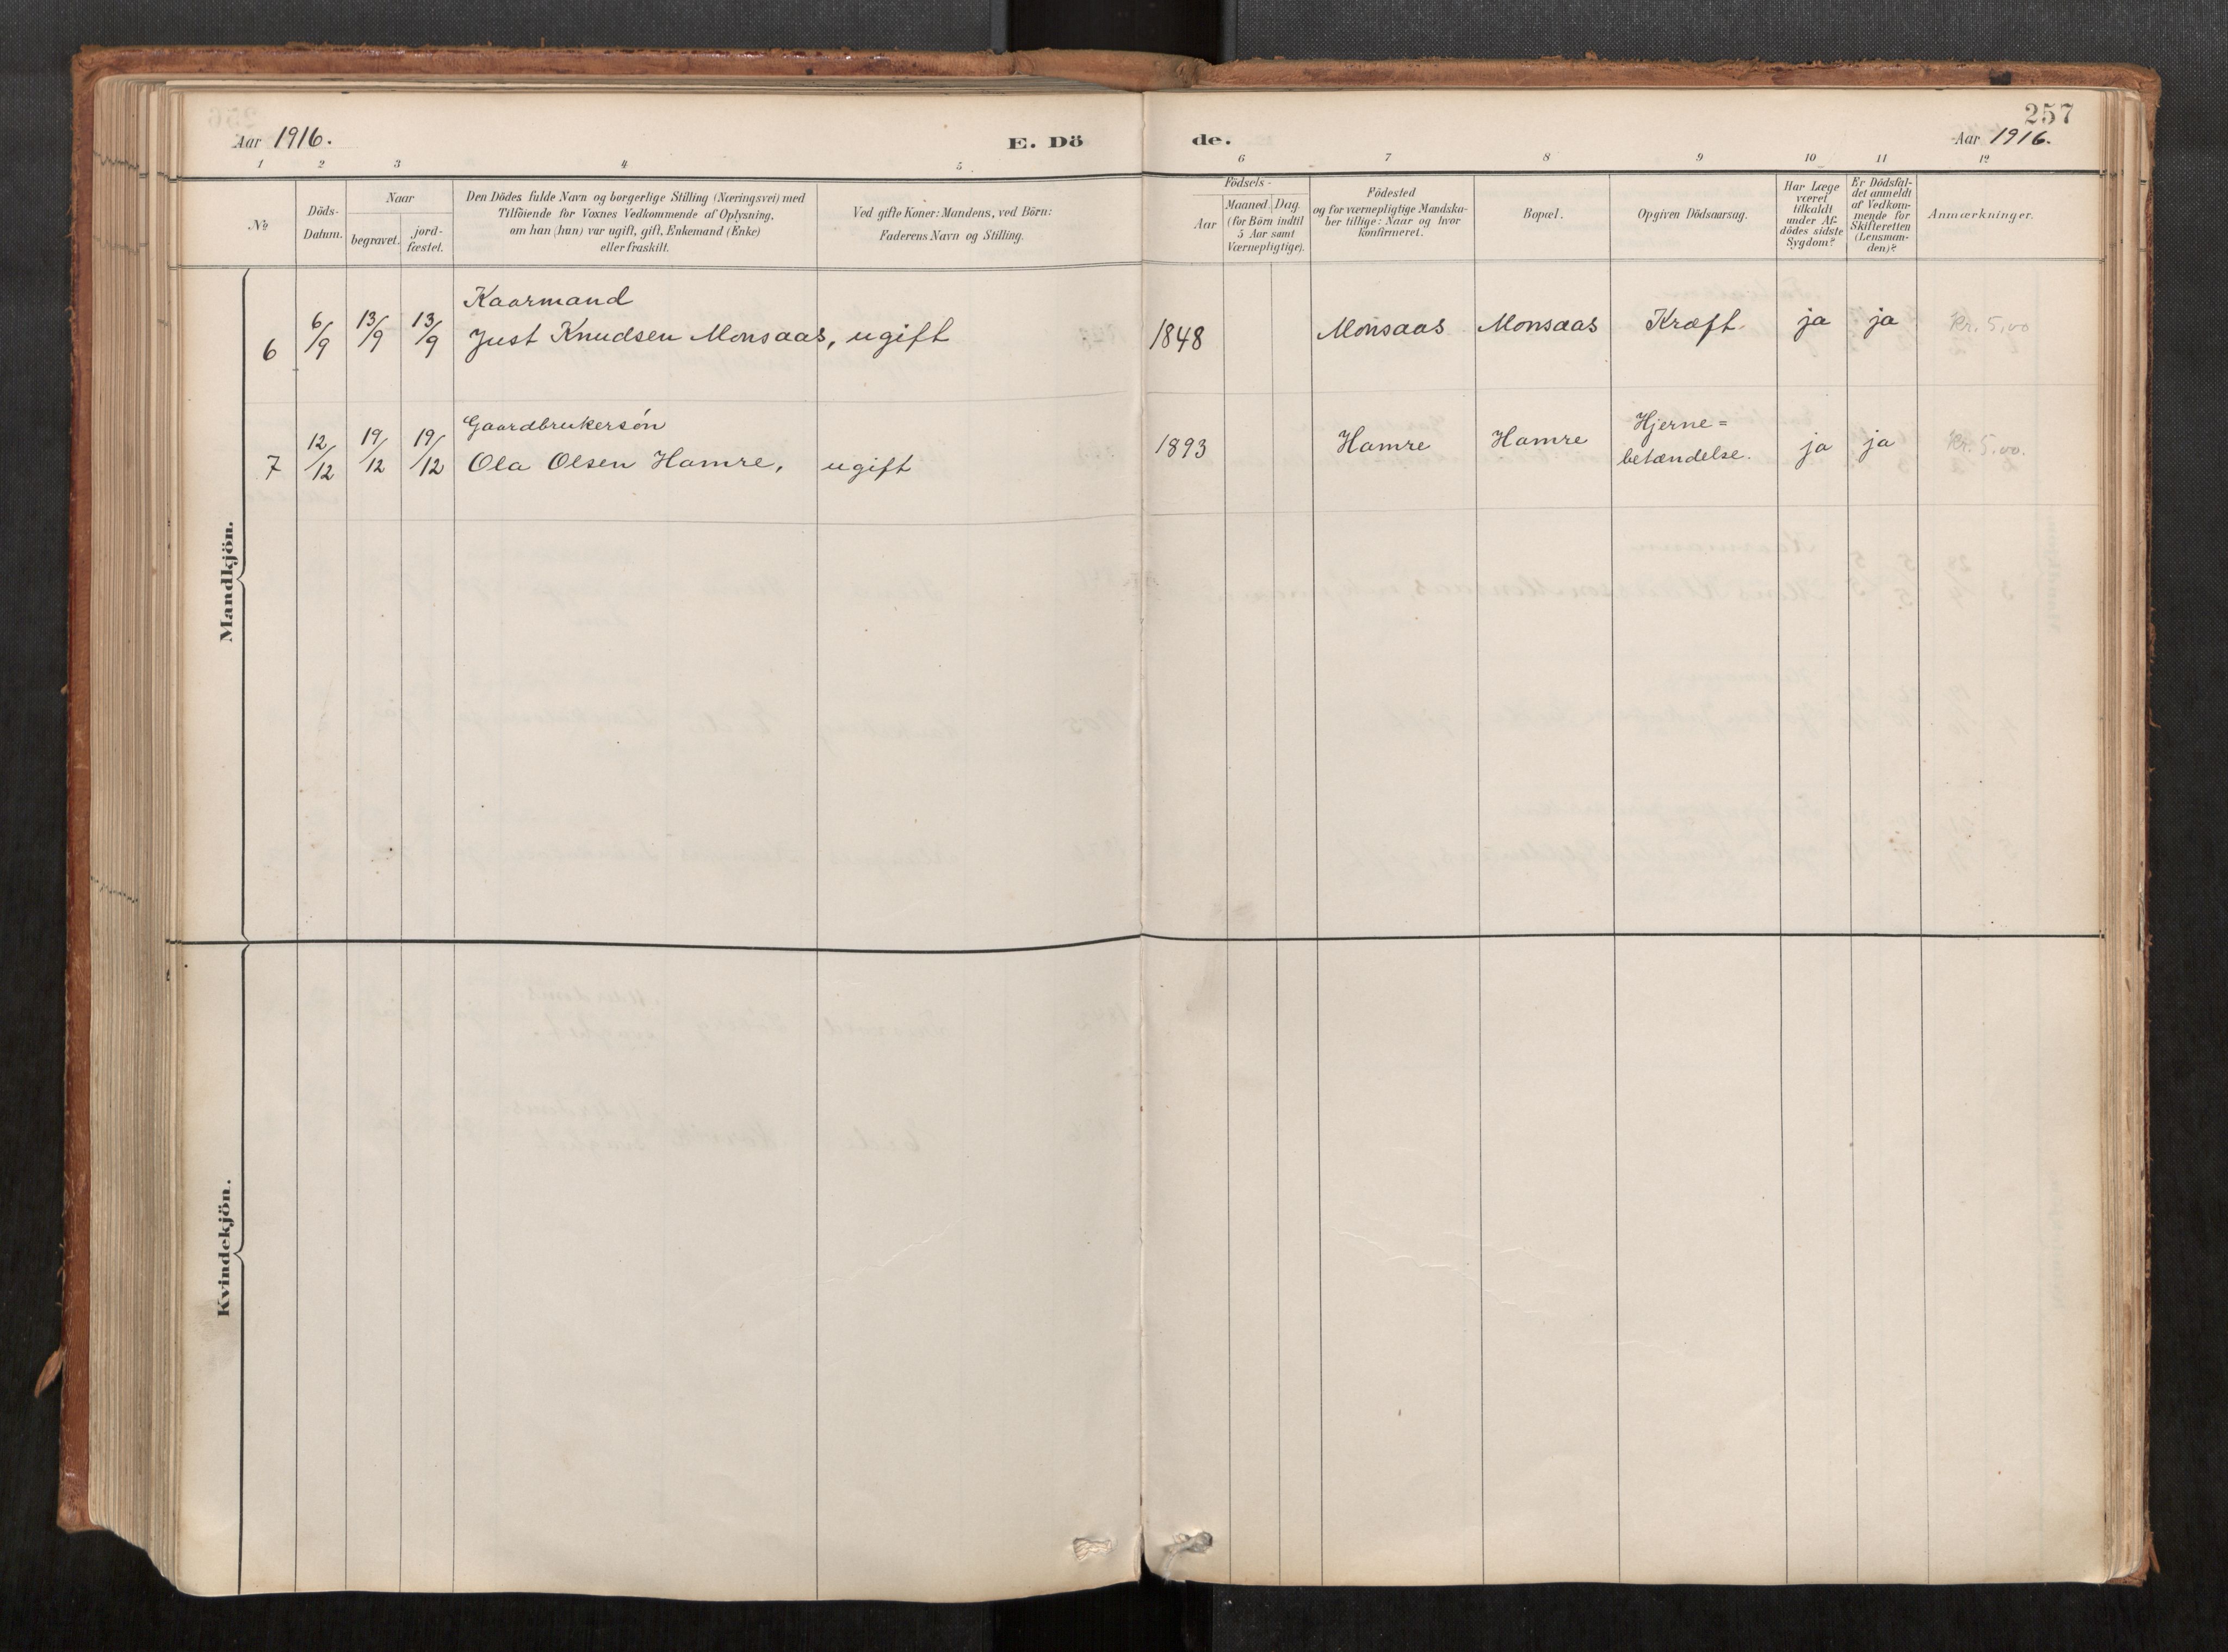 257
Aar 1916.
E. Döde.
Aar 1916.
1 2 3 4 5 6 7 8 9 10 11 12
No
Döds-
Datum.
Naar
begravet.
jord-
fæstet.
Den Dödes fulde Navn og borgerlige Stilling (Næringsvei) med
Tilföiende for Voxnes Vedkommende af Oplysning,
om han (hun) var ugift, gift, Enkemand (Enke)
eller fraskilt.
Ved gifte Koner: Mandens, ved Börn:
Faderens Navn og Stilling.
Födsels-
Aar
Maaned. Dag.
(for Börn indtil
5 Aar samt
Værnepligtige).
Födested
og for værnepligtige Mandska-
ber tillige: Naar og hvor
konfirmeret.
Bopæl.
Opgiven Dödsaarsag.
Har Læge
været
tilkaldt
under Af-
dödes sidste
Sygdom?
Er Dödsfal-
det anmeldt
af Vedkom-
mende for
Skifteretten
(Lensman-
den)?
Anmærkninger.
Mandkjön.
Kaarmand
6 6/9 13/9 13/9 Just Knudsen Monsaas, ugift 1848 Monsaas Monsaas Kræft. ja ja Kr. 5,00
Gaardbrukersön
7 12/12 19/12 19/12 Ola Olsen Hamre, ugift 1893 Hamre Hamre Hjerne=
betændelse. ja ja Kr. 5,00.
Kvindekjön.